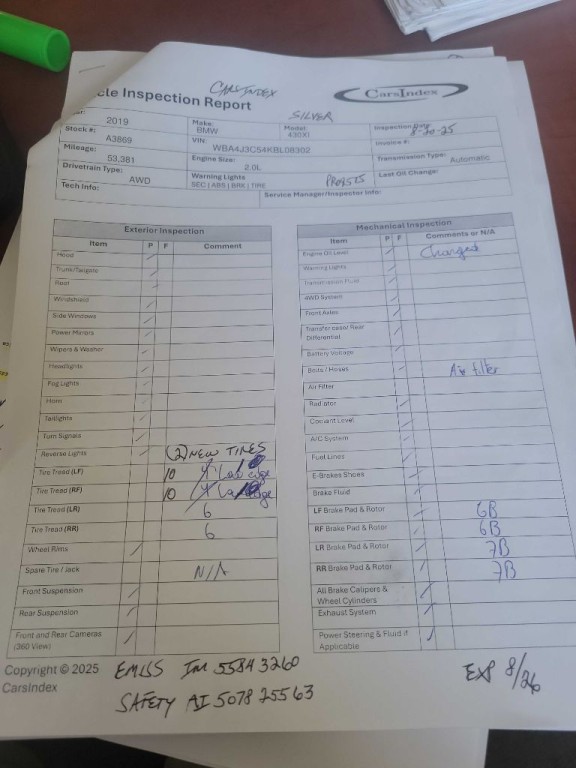 CARSINDEX
cle Inspection Report
CarsIndex
SILVER
2019
Make:
BMW
Model
430XI
Inspection
8-20-25
Stock #:
A3869
VIN:
WBA4J3C54KBL08302
Invoice #:
Mileage:
53,381
Engine Size:
2.0L
Transmission Type:
Automatic
Drivetrain Type:
AWD
Warning Lights
SEC | ABS | BRK | TIRE
Last Oil Change:
Tech Info:
Service Manager/Inspector Info:
Exterior Inspection
Item P F Comment
Hood
Trunk/Tailgate
Roof
Windshield
Side Windows
Power Mirrors
Wipers & Washer
Headlights
Fog Lights
Horn
Taillights
Turn Signals
Reverse Lights (2) NEW TIRES
Tire Tread (LF) 10
Tire Tread (RF) 10
Tire Tread (LR) 6
Tire Tread (RR) 6
Wheel Rims
Spare Tire / Jack N/A
Front Suspension
Rear Suspension
Front and Rear Cameras
(360 View)
Mechanical Inspection
Item P F Comments or N/A
Engine Oil Level Changed
Warning Lights
Transmission Fluid
4WD System
Front Axles
Transfer case/ Rear
Differential
Battery Voltage
Belts / Hoses Air filter
Air Filter
Radiator
Coolant Level
A/C System
Fuel Lines
E-Brakes Shoes
Brake Fluid
LF Brake Pad & Rotor 6B
RF Brake Pad & Rotor 6B
LR Brake Pad & Rotor 7B
RR Brake Pad & Rotor 7B
All Brake Calipers &
Wheel Cylinders
Exhaust System
Power Steering & Fluid if
Applicable
Copyright © 2025
CarsIndex
EMISS IM 55843260
SAFETY AI 507825563
EXP 8/26